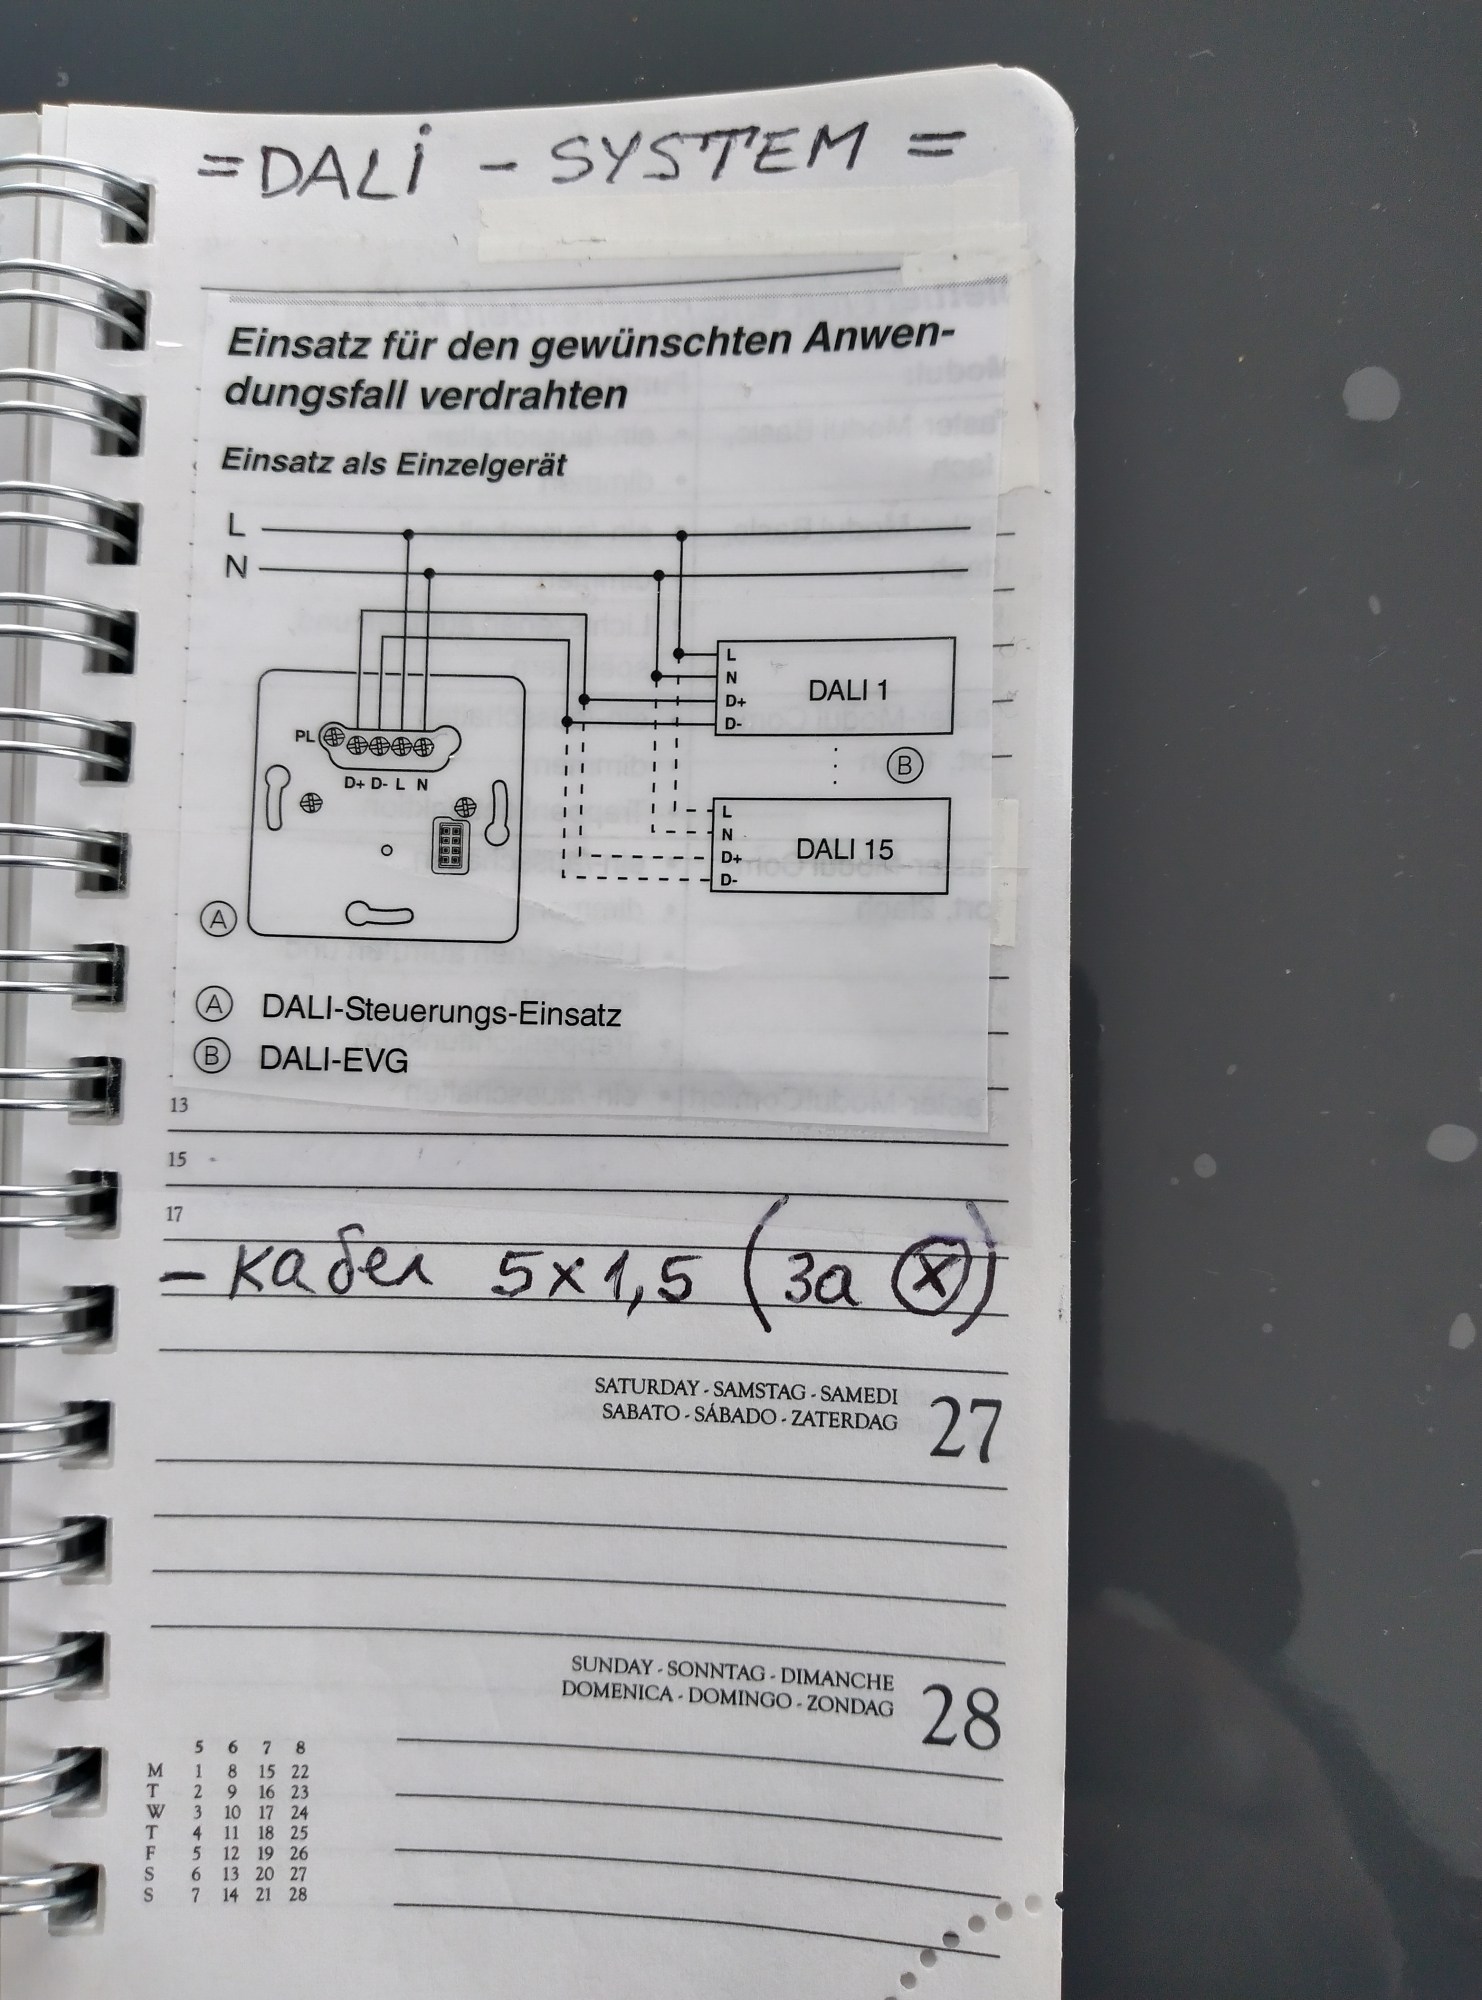 =DALI - SYSTEM =
Einsatz für den gewünschten Anwen-
dungsfall verdrahten
Einsatz als Einzelgerät
L
N
L
N
D+
D-
DALI 1
PL
D+ D- L N
B
L
N
D+
D-
DALI 15
A
A DALI-Steuerungs-Einsatz
B DALI-EVG
13
15
17
- кабел 5x1,5 (за ⓧ)
SATURDAY - SAMSTAG - SAMEDI
SABATO - SÁBADO - ZATERDAG
27
SUNDAY - SONNTAG - DIMANCHE
DOMENICA - DOMINGO - ZONDAG
28
5 6 7 8
M 1 8 15 22
T 2 9 16 23
W 3 10 17 24
T 4 11 18 25
F 5 12 19 26
S 6 13 20 27
S 7 14 21 28